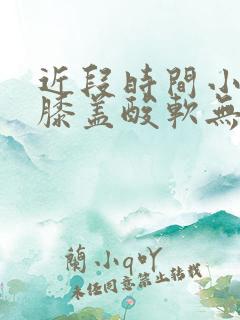 近段時間小
膝蓋酸軟無
蘭小q吖
未經同意禁止轉載